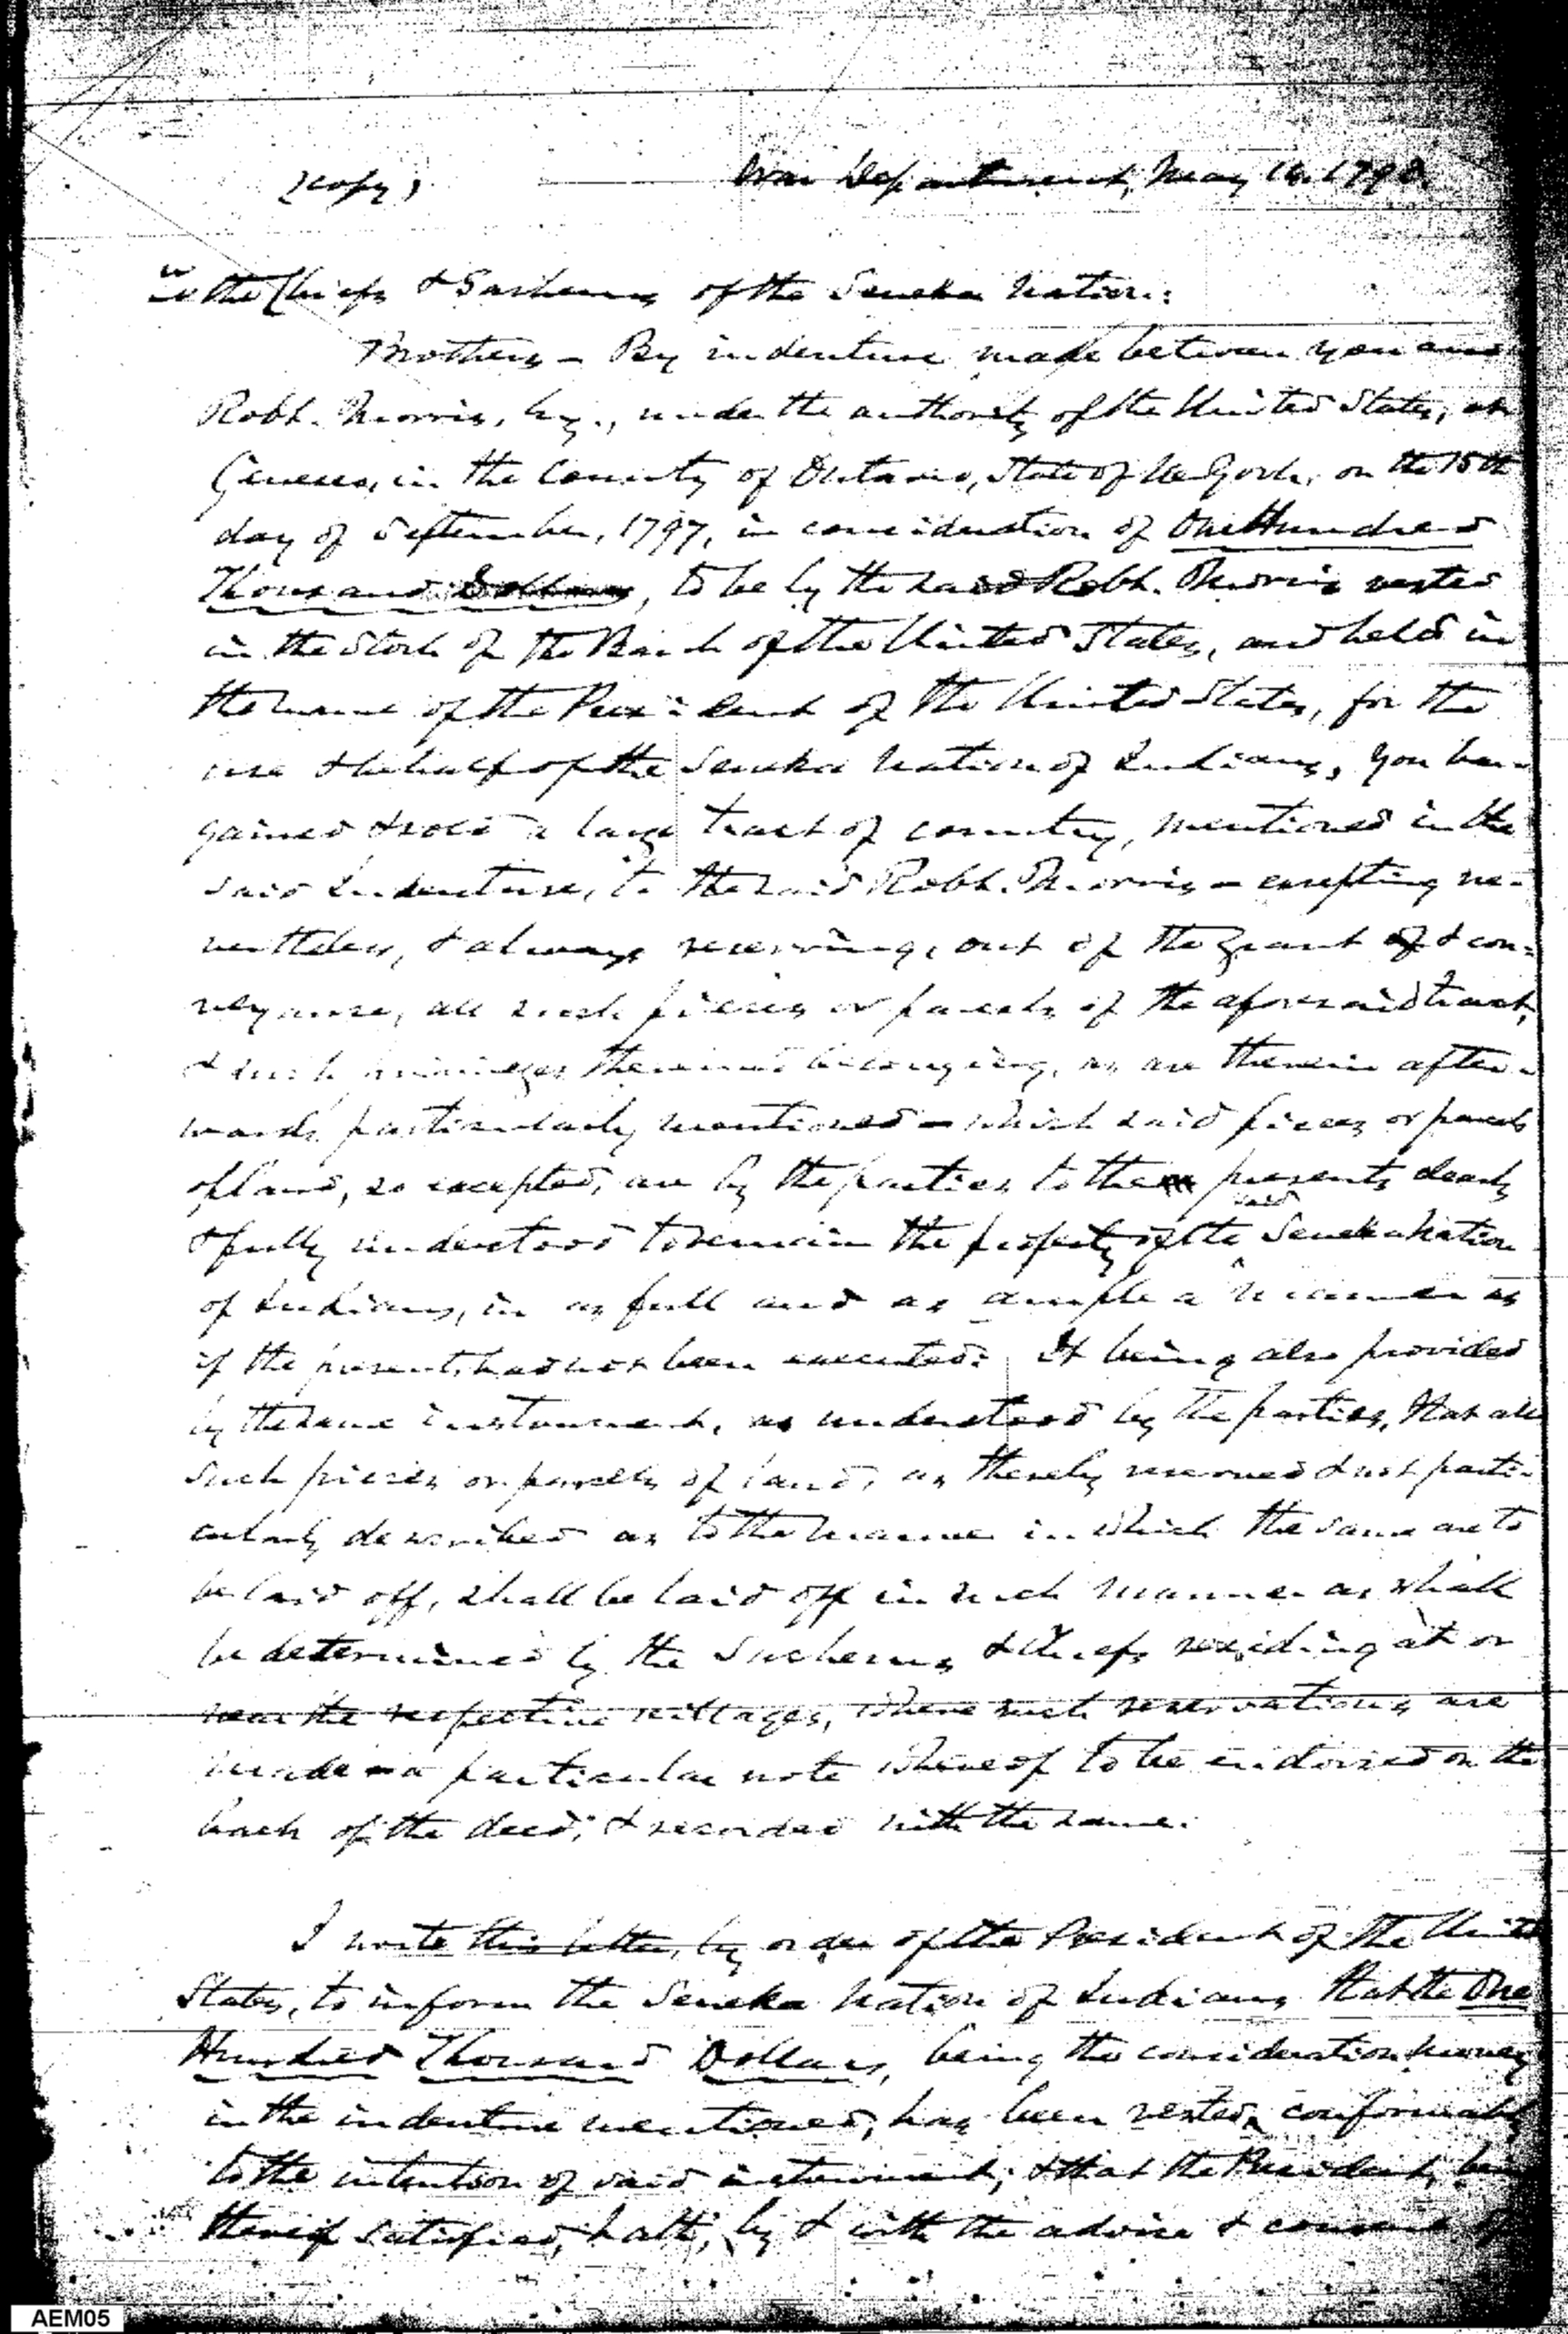 (copy)
War Department, May 14. 1798.
To the Chiefs & Sachems of the Seneka Nation:
Brothers – By indenture made between you and
Robt. Morris, Esq., under the authority of the United States, at
Genesee, in the County of Ontario, State of New York, on the 15th
day of September, 1797, in consideration of One Hundred
Thousand Dollars, to be by the said Robt. Morris vested
in the Stock of the Bank of the United States, and held in
the name of the President of the United States, for the
use & behalf of the Seneka Nation of Indians, you bar-
gained & sold a large tract of country, mentioned in the
said Indenture, to the said Robt. Morris – excepting ne-
vertheless, & always reserving, out of the grant & con-
veyance, all such pieces or parcels of the aforesaid tract,
& such privileges thereunto belonging, as are therein after-
wards particularly mentioned – which said pieces or parcels
of land, so excepted, are by the parties to these presents clearly
& fully understood to remain the property of the said Seneka Nation
of Indians, in as full and as ample a manner as
if the presents had not been executed: It being also provided
by the same instrument, as understood by the parties, that all
such pieces or parcels of land, as thereby reserved & not parti-
cularly described as to the manner in which the same are to
be laid off, shall be laid off in such manner as shall
be determined by the Sachems & Chiefs residing at or
near the respective villages, where such reservations are
made – a particular note whereof to be endorsed on the
back of the deed, & recorded with the same.
I write this letter, by order of the President of the United
States, to inform the Seneka Nation of Indians that the One
Hundred Thousand Dollars, being the consideration money
in the indenture mentioned, has been vested, conformably
to the intention of said instrument; & that the President, being
thereof satisfied, hath, by & with the advice & consent of
AEM05